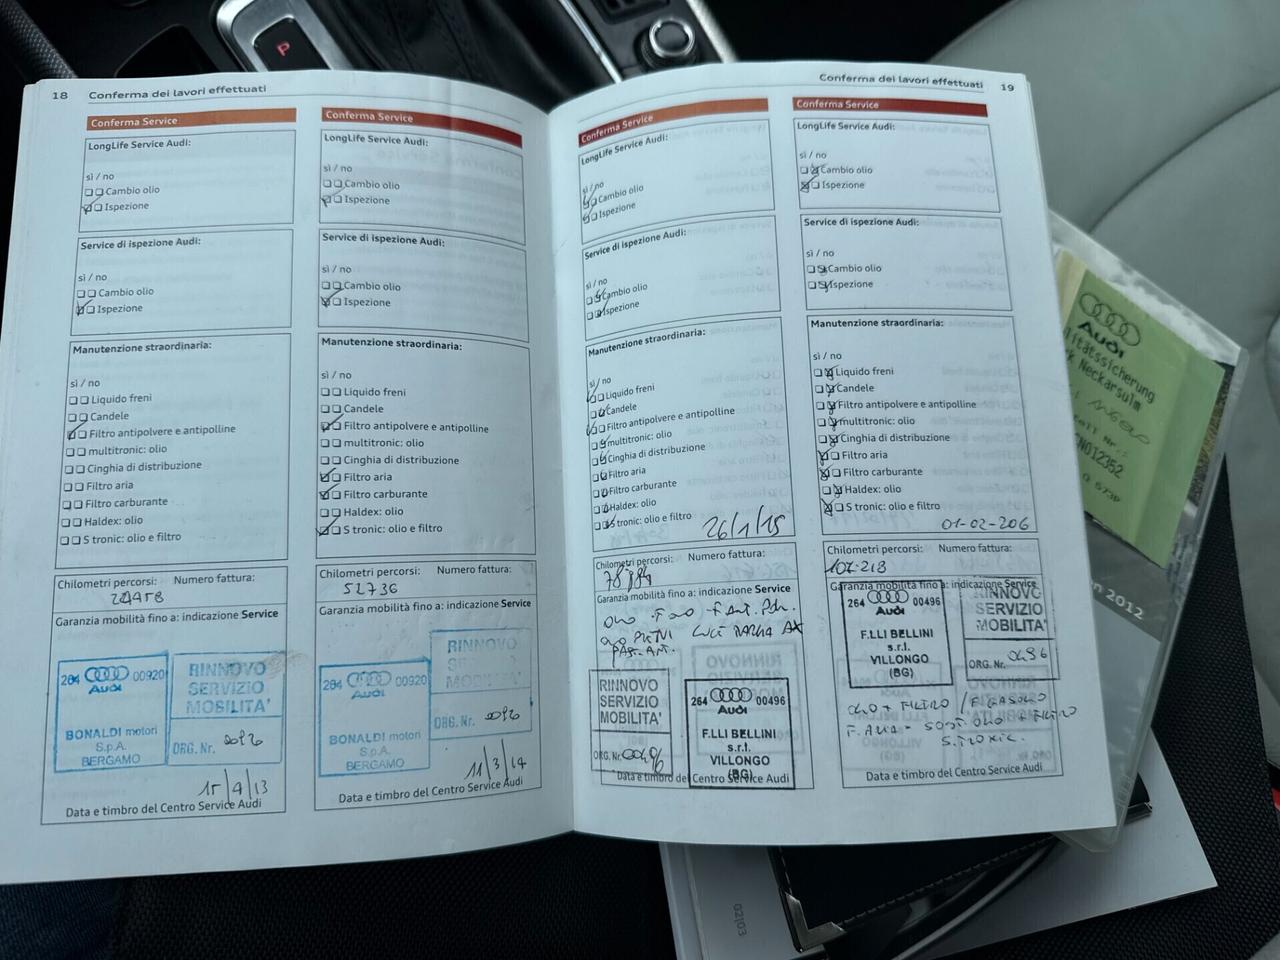 P
18 Conferma dei lavori effettuati
Conferma Service
LongLife Service Audi:
sì / no
Cambio olio
Ispezione
Service di ispezione Audi:
sì / no
Cambio olio
Ispezione
Manutenzione straordinaria:
sì / no
Liquido freni
Candele
Filtro antipolvere e antipolline
multitronic: olio
Cinghia di distribuzione
Filtro aria
Filtro carburante
Haldex: olio
S tronic: olio e filtro
Chilometri percorsi: Numero fattura:
Garanzia mobilità fino a: indicazione Service
264 00920
Audi
BONALDI motori
S.p.A.
BERGAMO
RINNOVO
SERVIZIO
MOBILITA'
ORG. Nr.
15/4/13
Data e timbro del Centro Service Audi
Conferma Service
LongLife Service Audi:
sì / no
Cambio olio
Ispezione
Service di ispezione Audi:
sì / no
Cambio olio
Ispezione
Manutenzione straordinaria:
sì / no
Liquido freni
Candele
Filtro antipolvere e antipolline
multitronic: olio
Cinghia di distribuzione
Filtro aria
Filtro carburante
Haldex: olio
S tronic: olio e filtro
Chilometri percorsi: Numero fattura:
52736
Garanzia mobilità fino a: indicazione Service
264 00920
Audi
BONALDI motori
S.p.A.
BERGAMO
RINNOVO
SERVIZIO
MOBILITA'
ORG. Nr.
11/3/14
Data e timbro del Centro Service Audi
Conferma dei lavori effettuati 19
Conferma Service
LongLife Service Audi:
sì / no
Cambio olio
Ispezione
Service di ispezione Audi:
sì / no
Cambio olio
Ispezione
Manutenzione straordinaria:
sì / no
Liquido freni
Candele
Filtro antipolvere e antipolline
multitronic: olio
Cinghia di distribuzione
Filtro aria
Filtro carburante
Haldex: olio
S tronic: olio e filtro
26/1/15
Chilometri percorsi: Numero fattura:
Garanzia mobilità fino a: indicazione Service
RINNOVO
SERVIZIO
MOBILITA'
ORG. Nr. 00496
264 00496
Audi
F.LLI BELLINI
s.r.l.
VILLONGO
(BG)
Data e timbro del Centro Service Audi
Conferma Service
LongLife Service Audi:
sì / no
Cambio olio
Ispezione
Service di ispezione Audi:
sì / no
Cambio olio
Ispezione
Manutenzione straordinaria:
sì / no
Liquido freni
Candele
Filtro antipolvere e antipolline
multitronic: olio
Cinghia di distribuzione
Filtro aria
Filtro carburante
Haldex: olio
S tronic: olio e filtro
01-02-206
Chilometri percorsi: Numero fattura:
102-218
Garanzia mobilità fino a: indicazione Service
264 00496
Audi
F.LLI BELLINI
s.r.l.
VILLONGO
(BG)
RINNOVO
SERVIZIO
MOBILITA'
ORG. Nr. 0496
OLIO + FILTRO / F. GASOLIO
F. ARIA - SOST. OLIO + FILTRO
S. TRONIC.
Data e timbro del Centro Service Audi
Audi
litätssicherung
rk Neckarsulm
N012352
n 2012
02|03